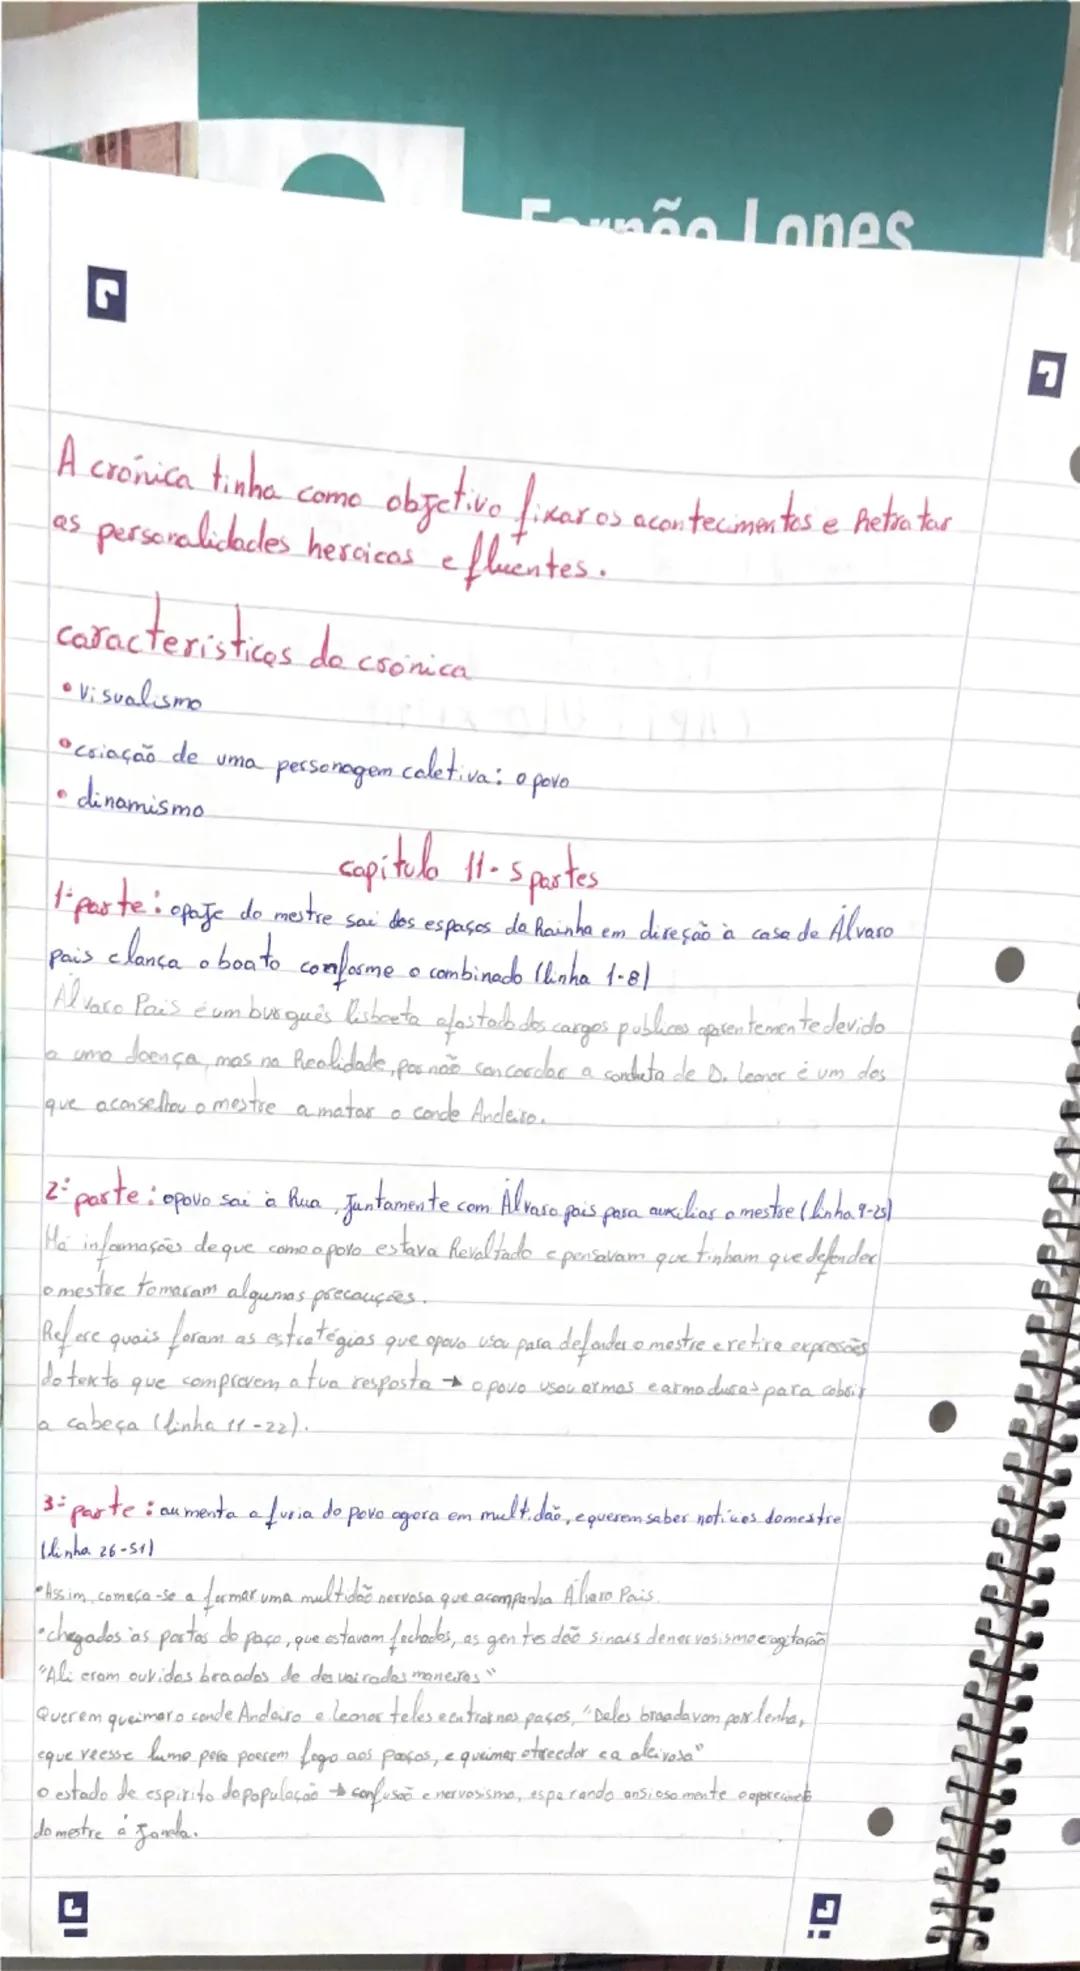 Fernão Lopes
A crónica tinha como objetivo fixar os acontecimentos e Retratar
as personalidades heroicas e fluentes.
caracteristicas da crónica
• Visualismo
• criação de uma personagem coletiva: o povo
• dinamismo
capitulo 11 - 5 partes
1ª parte: o paje do mestre sai dos espaços da Rainha em direção à casa de Álvaro
pais e lança o boato conforme o combinado (linha 1-8)
Alvaro Pais é um burguês lisboeta afastado dos cargos publicos aparentemente devido
a uma doença, mas na Realidade, por não concordar a conduta de D. leonor é um dos
que aconselhou o mestre a matar o conde Andeiro.
2ª parte: o povo sai à Rua, Juntamente com Álvaro pais para auxiliar o mestre (linha 9-25)
Há informações de que como o povo estava Revoltado e pensavam que tinham que defender
o mestre tomaram algumas precauções.
Refere quais foram as estratégias que o povo usou para defender o mestre e retira expressões
do texto que comprovem a tua resposta → o povo usou armas e armaduras para cobrir
a cabeça (linha 11-22).
3ª parte: aumenta a furia do povo agora em multidão, e querem saber noticias do mestre
(linha 26-51)
• Assim, começa-se a formar uma multidão nervosa que acompanha Álvaro Pais.
• chegados às portas do paço, que estavam fechados, as gentes dão sinais de nervosismo e agitação
"Ali eram ouvidos braados de desvairadas maneiras"
Querem queimar o conde Andeiro e leonor teles e entrar nos paços, "Deles braadavam por lenha,
e que veesse lume pera poerem fogo aos paaços, e queimar o treedor e a aleivosa"
o estado de espirito da população → confusão e nervosismo, esperando ansiosamente o aparecimento
do mestre á Janela.